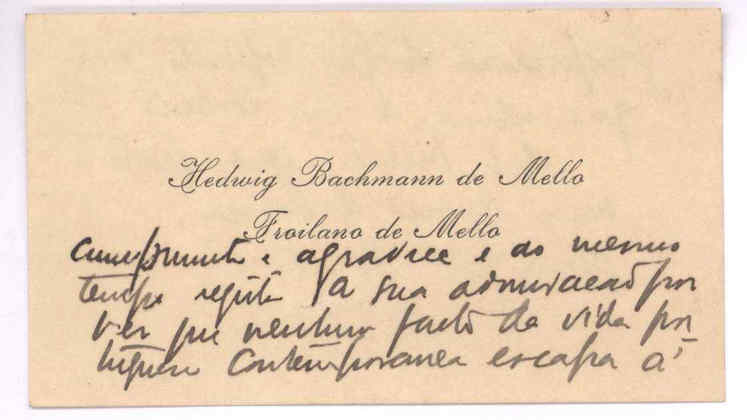 Hedwig Bachmann de Mello
Froilano de Mello
cumprimenta, agradece e ao mesmo
tempo regista a sua admiração por
ver que nenhum facto da vida por
tuguesa contemporanea escapa á